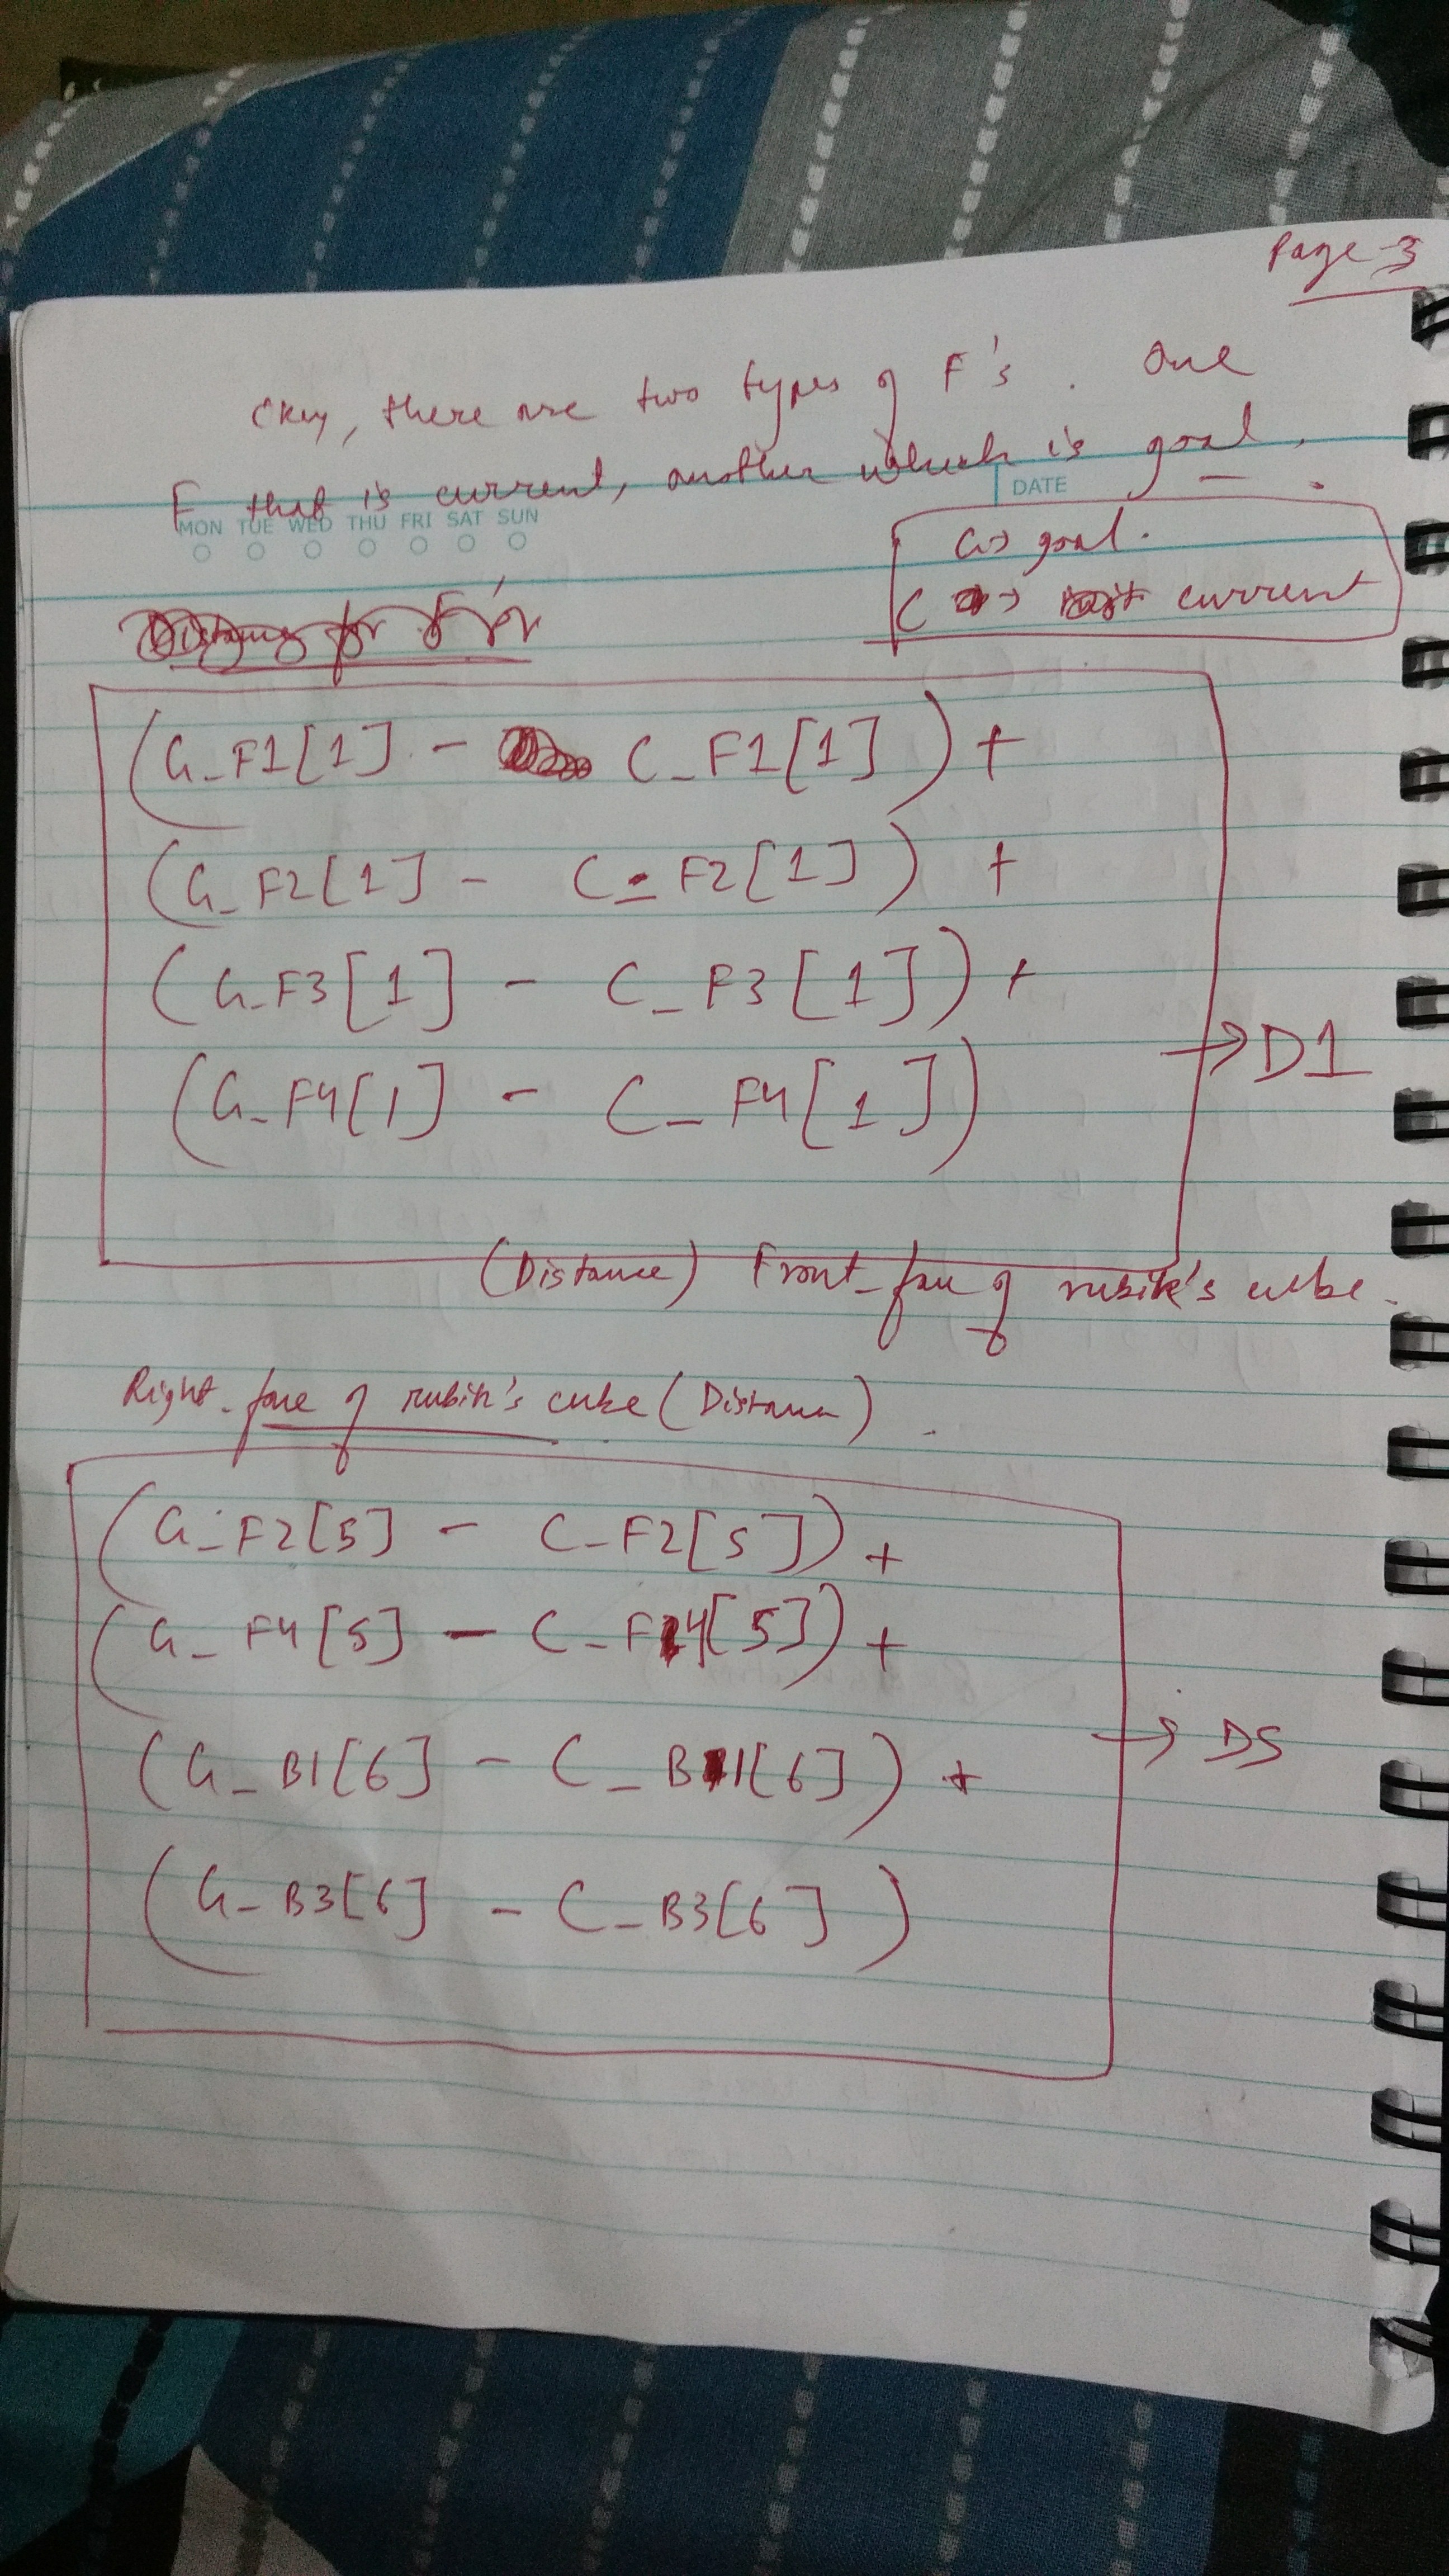 Page-3
Okay, there are two types of F's. One
F that is current, another which is goal.
DATE
MON TUE WED THU FRI SAT SUN
G → goal.
C → current
Distance for F's
(G_F1[1] - C_F1[1]) +
(G_F2[1] - C_F2[1]) +
(G_F3[1] - C_F3[1]) +
→ D1
(G_F4[1] - C_F4[1])
(Distance) Front-face of rubik's cube.
Right-face of rubik's cube (Distance).
(G_F2[5] - C_F2[5]) +
(G_F4[5] - C_F4[5]) +
(G_B1[6] - C_B1[6]) +
→ D5
(G_B3[6] - C_B3[6])